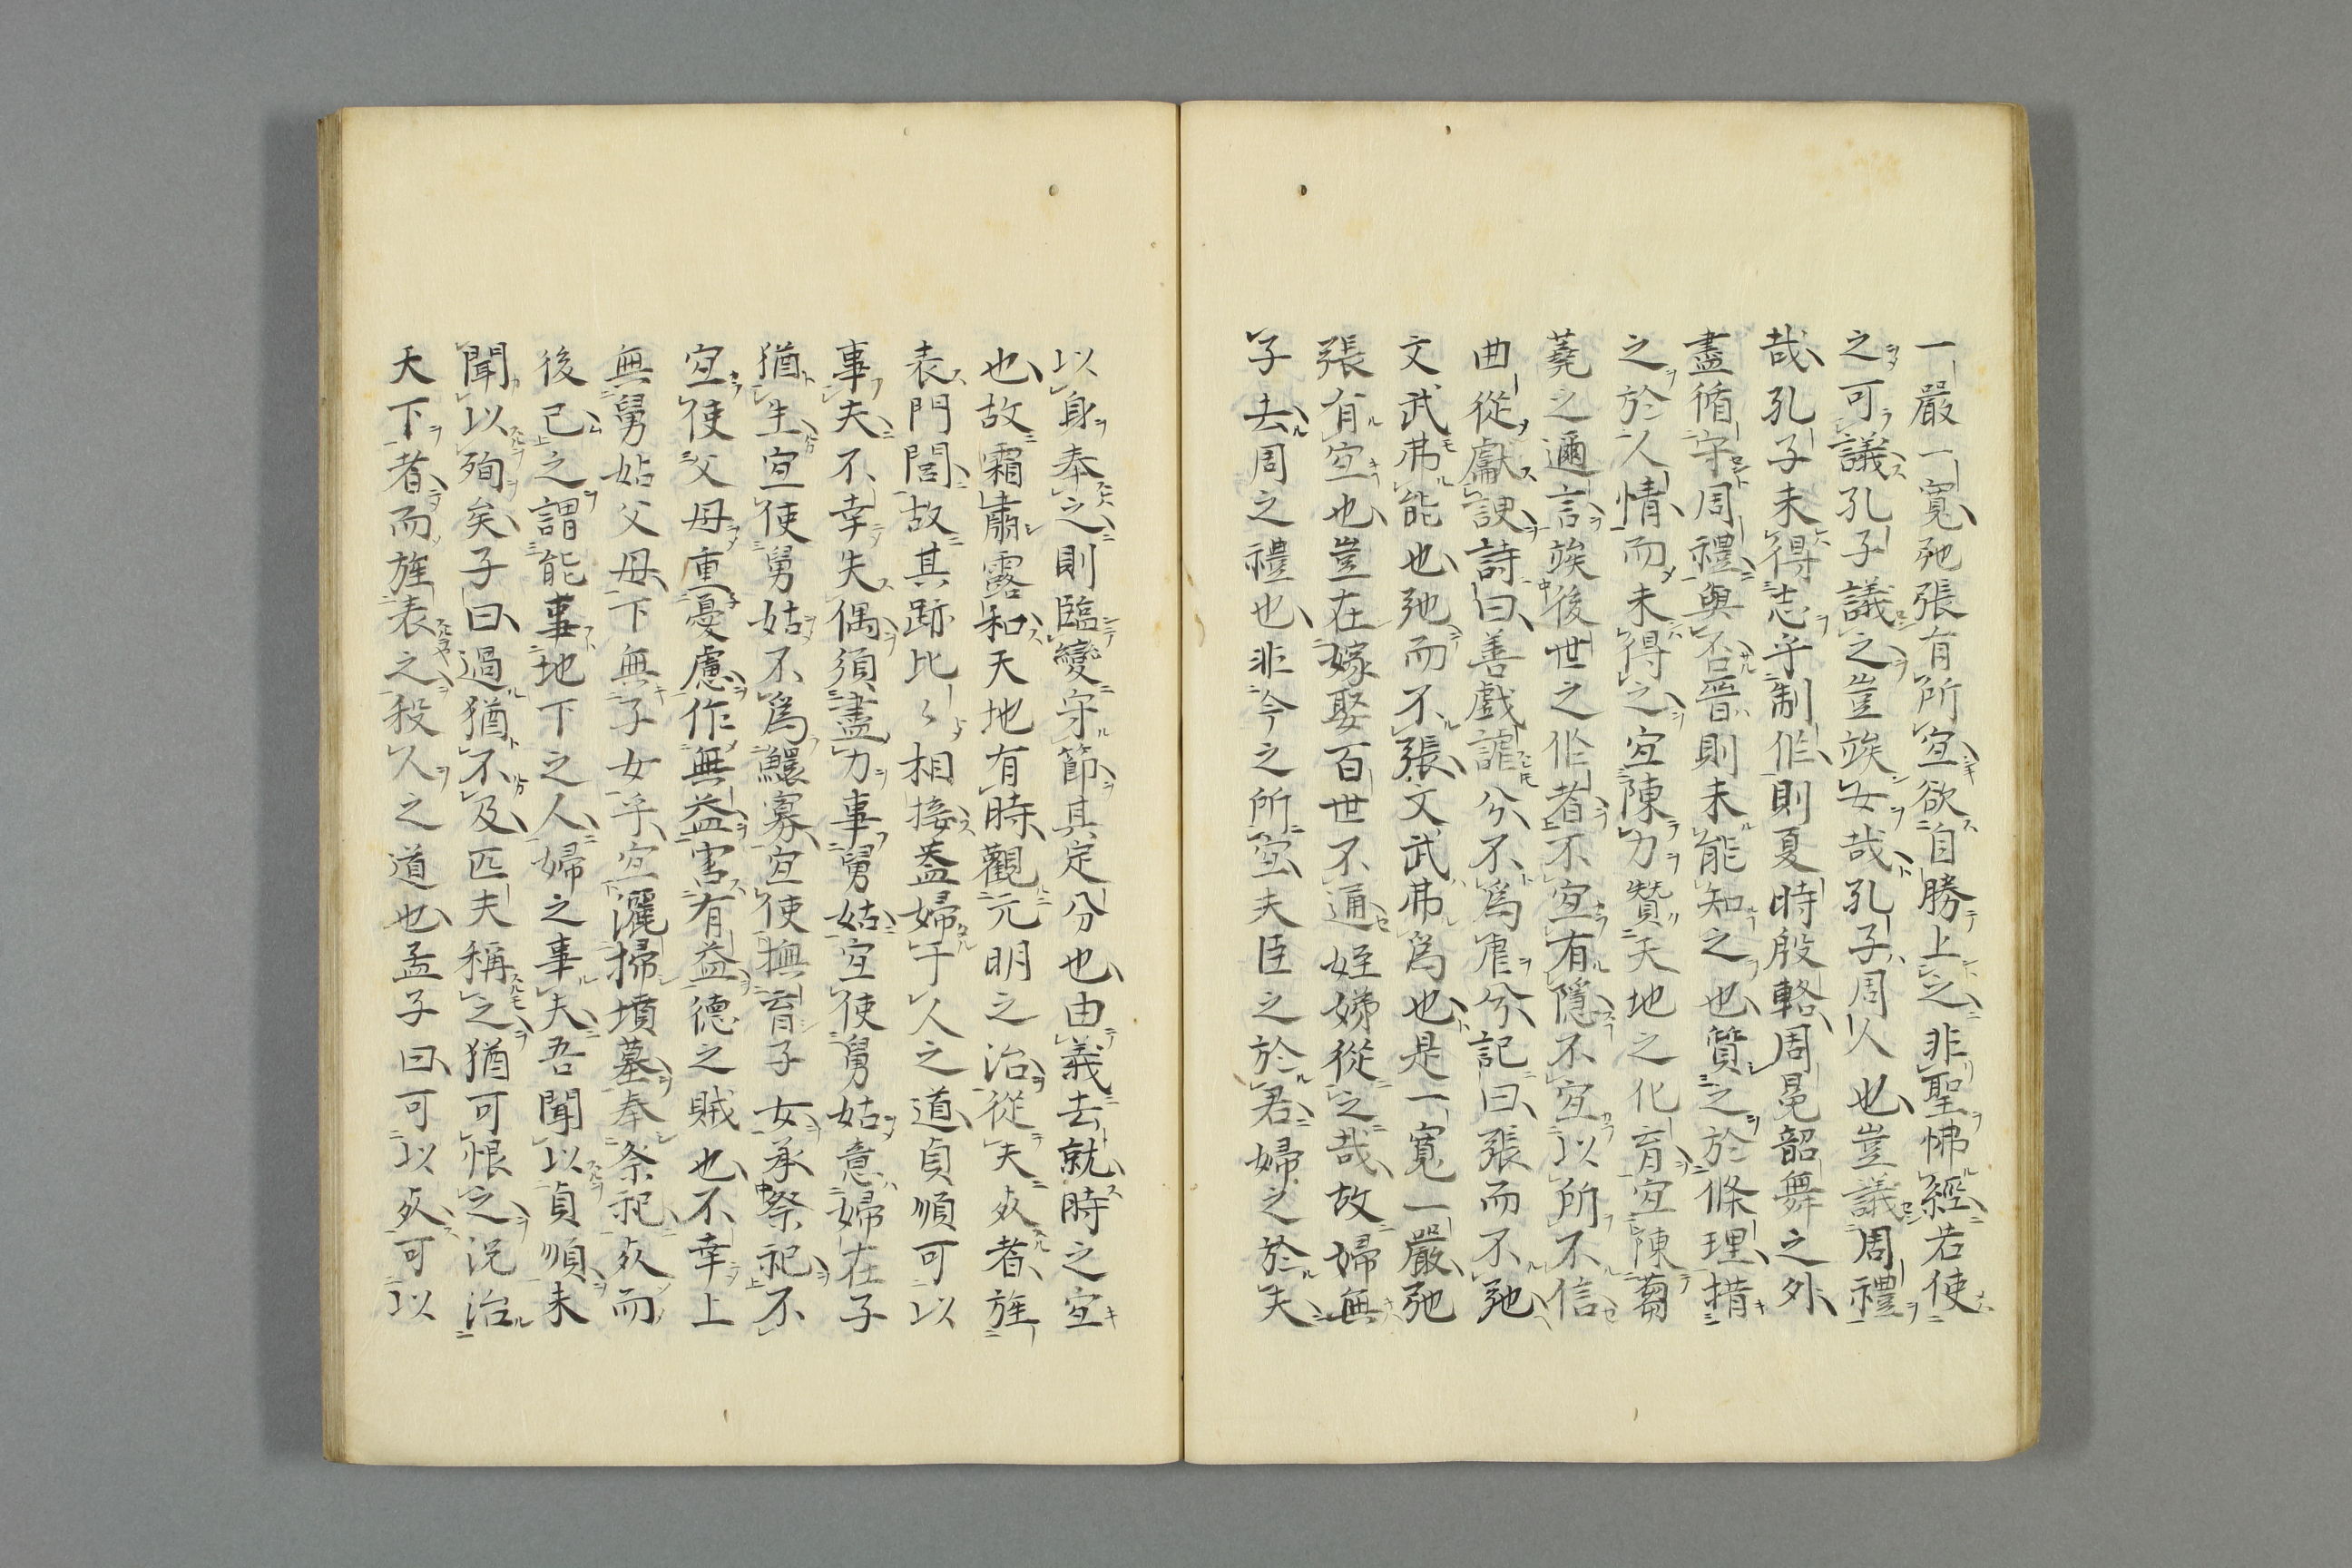 一嚴一寬弛張有所宜欲自勝上之非聖怫經若使
之可議孔子議之豈竢女哉孔子周人也豈議周禮
哉孔子未得志乎制作則夏時殷輅周冕韶舞之外
盡循守周禮與否晉則未能知之也質之於條理措
之於人情而未得之宜陳力贊天地之化育宜陳蒭
蕘之邇言竢後世之作者不宜有隱不宜以所不信
曲從獻諛詩曰善戲謔兮不爲虐兮記曰張而不弛
文武弗能也弛而不張文武弗爲也是一寬一嚴弛
張有宜也豈在嫁娶百世不通姪娣從之哉故婦無
子去周之禮也非今之所宜夫臣之於君婦之於夫
以身奉之則臨變守節其定分也由義去就時之宜
也故霜肅露和天地有時觀元明之治從夫死者旌
表門閭故其跡比〻相接蓋婦于人之道貞順可以
事夫不幸失偶須盡力事舅姑宜使舅姑意婦在子
猶生宜使舅姑不爲鰥寡宜使撫育子女承祭祀不
宜使父母重憂慮作無益害有益德之賊也不幸上
無舅姑父母下無子女乎宜灑掃墳墓奉祭祀死而
後已之謂能事地下之人婦之事夫吾聞以貞順未
聞以殉矣子曰過猶不及匹夫稱之猶可恨之況治
天下者而旌表之殺人之道也孟子曰可以死可以